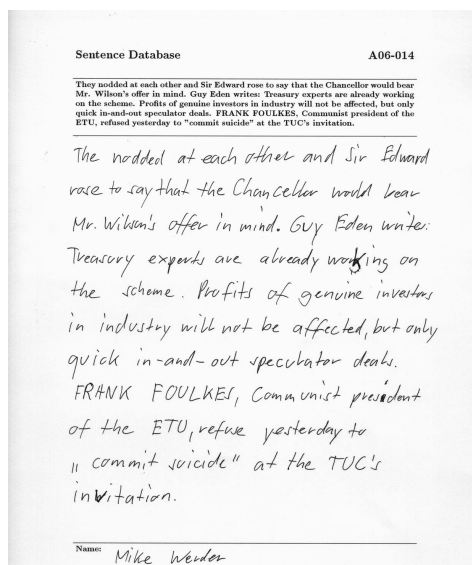 Sentence Database A06-014
They nodded at each other and Sir Edward rose to say that the Chancellor would bear
Mr. Wilson's offer in mind. Guy Eden writes: Treasury experts are already working
on the scheme. Profits of genuine investors in industry will not be affected, but only
quick in-and-out speculator deals. FRANK FOULKES, Communist president of the
ETU, refused yesterday to "commit suicide" at the TUC's invitation.
The nodded at each other and Sir Edward
rose to say that the Chancellor would bear
Mr. Wilson's offer in mind. Guy Eden write:
Treasury experts are already working on
the scheme. Profits of genuine investors
in industry will not be affected, but only
quick in-and-out speculator deals.
FRANK FOULKES, Communist president
of the ETU, refuse yesterday to
„ commit suicide" at the TUC's
invitation.
Name: Mike Werder